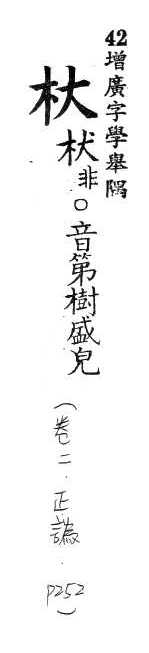 42增廣字學舉隅
杕 枤非○音第樹盛皃
(卷二.正譌.P252)